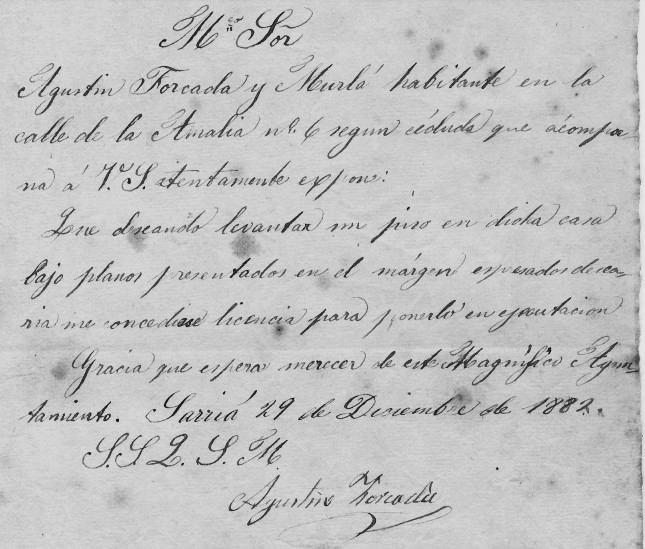 M.co Sor
Agustin Forcada y Murlá habitante en la
calle de la Amalia nº. 6 segun cédula que acompa-
ña á V. S. atentamente expone:
Que deseando levantar un piso en dicha casa
bajo planos presentados en el márgen espresados desea-
ria me concediese licencia para ponerlo en ejecutacion
Gracia que espera merecer de este Magnifico Ayun-
tamiento. Sarriá 29 de Diciembre de 1882.
S. S. Q. S. M.
Agustin Forcada